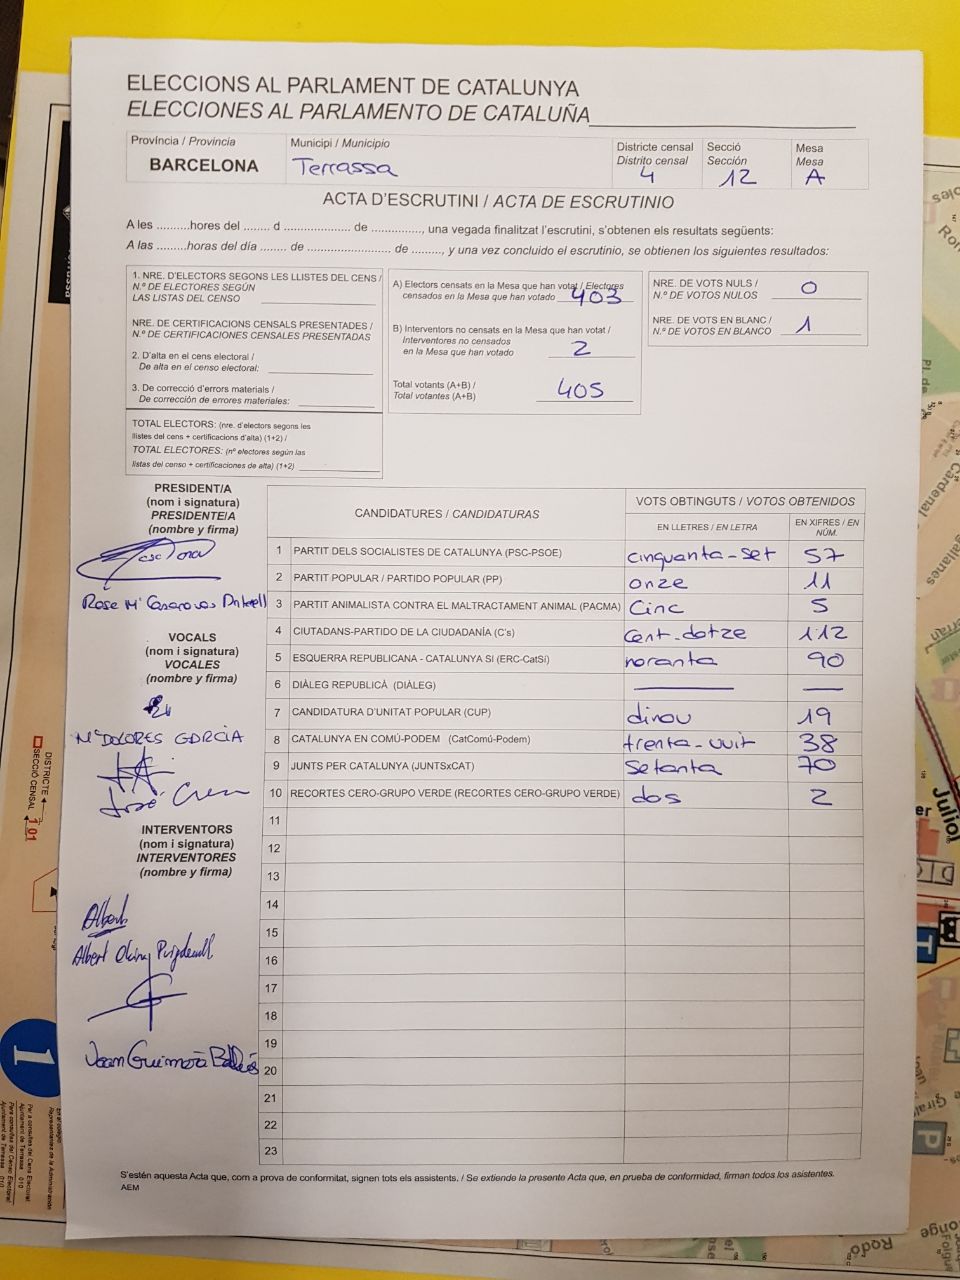 ELECCIONS AL PARLAMENT DE CATALUNYA
ELECCIONES AL PARLAMENTO DE CATALUÑA
Província / Provincia
BARCELONA
Municipi / Municipio
Terrassa
Districte censal
Distrito censal
4
Secció
Sección
12
Mesa
Mesa
A
ACTA D'ESCRUTINI / ACTA DE ESCRUTINIO
A les ..........hores del ........ d .................... de ..............., una vegada finalitzat l'escrutini, s'obtenen els resultats següents:
A las .........horas del día ....... de ......................... de ........., y una vez concluido el escrutinio, se obtienen los siguientes resultados:
1. NRE. D'ELECTORS SEGONS LES LLISTES DEL CENS /
N.º DE ELECTORES SEGÚN
LAS LISTAS DEL CENSO
NRE. DE CERTIFICACIONS CENSALS PRESENTADES /
N.º DE CERTIFICACIONES CENSALES PRESENTADAS
2. D'alta en el cens electoral /
De alta en el censo electoral:
3. De correcció d'errors materials /
De corrección de errores materiales:
TOTAL ELECTORS: (nre. d'electors segons les
llistes del cens + certificacions d'alta) (1+2) /
TOTAL ELECTORES: (nº electores según las
listas del censo + certificaciones de alta) (1+2)
A) Electors censats en la Mesa que han votat / Electores
censados en la Mesa que han votado 403
B) Interventors no censats en la Mesa que han votat /
Interventores no censados
en la Mesa que han votado 2
Total votants (A+B) /
Total votantes (A+B) 405
NRE. DE VOTS NULS /
N.º DE VOTOS NULOS 0
NRE. DE VOTS EN BLANC /
N.º DE VOTOS EN BLANCO 1
PRESIDENT/A
(nom i signatura)
PRESIDENTE/A
(nombre y firma)
Rosa Mª Casanovas
VOCALS
(nom i signatura)
VOCALES
(nombre y firma)
Mª DOLORES GARCIA
José
INTERVENTORS
(nom i signatura)
INTERVENTORES
(nombre y firma)
Albert
Albert
Joan Guimerà
CANDIDATURES / CANDIDATURAS
VOTS OBTINGUTS / VOTOS OBTENIDOS
EN LLETRES / EN LETRA
EN XIFRES / EN NÚM.
1 PARTIT DELS SOCIALISTES DE CATALUNYA (PSC-PSOE) cinquanta-set 57
2 PARTIT POPULAR / PARTIDO POPULAR (PP) onze 11
3 PARTIT ANIMALISTA CONTRA EL MALTRACTAMENT ANIMAL (PACMA) Cinc 5
4 CIUTADANS-PARTIDO DE LA CIUDADANÍA (C's) cent-dotze 112
5 ESQUERRA REPUBLICANA - CATALUNYA SÍ (ERC-CatSí) noranta 90
6 DIÀLEG REPUBLICÀ (DIÀLEG)
7 CANDIDATURA D'UNITAT POPULAR (CUP) dinou 19
8 CATALUNYA EN COMÚ-PODEM (CatComú-Podem) trenta-vuit 38
9 JUNTS PER CATALUNYA (JUNTSxCAT) setanta 70
10 RECORTES CERO-GRUPO VERDE (RECORTES CERO-GRUPO VERDE) dos 2
11
12
13
14
15
16
17
18
19
20
21
22
23
S'estén aquesta Acta que, com a prova de conformitat, signen tots els assistents. / Se extiende la presente Acta que, en prueba de conformidad, firman todos los asistentes.
AEM
DISTRICTE
SECCIÓ CENSAL 1 01
1
Cardenal
Juliol
T
P
Rodo